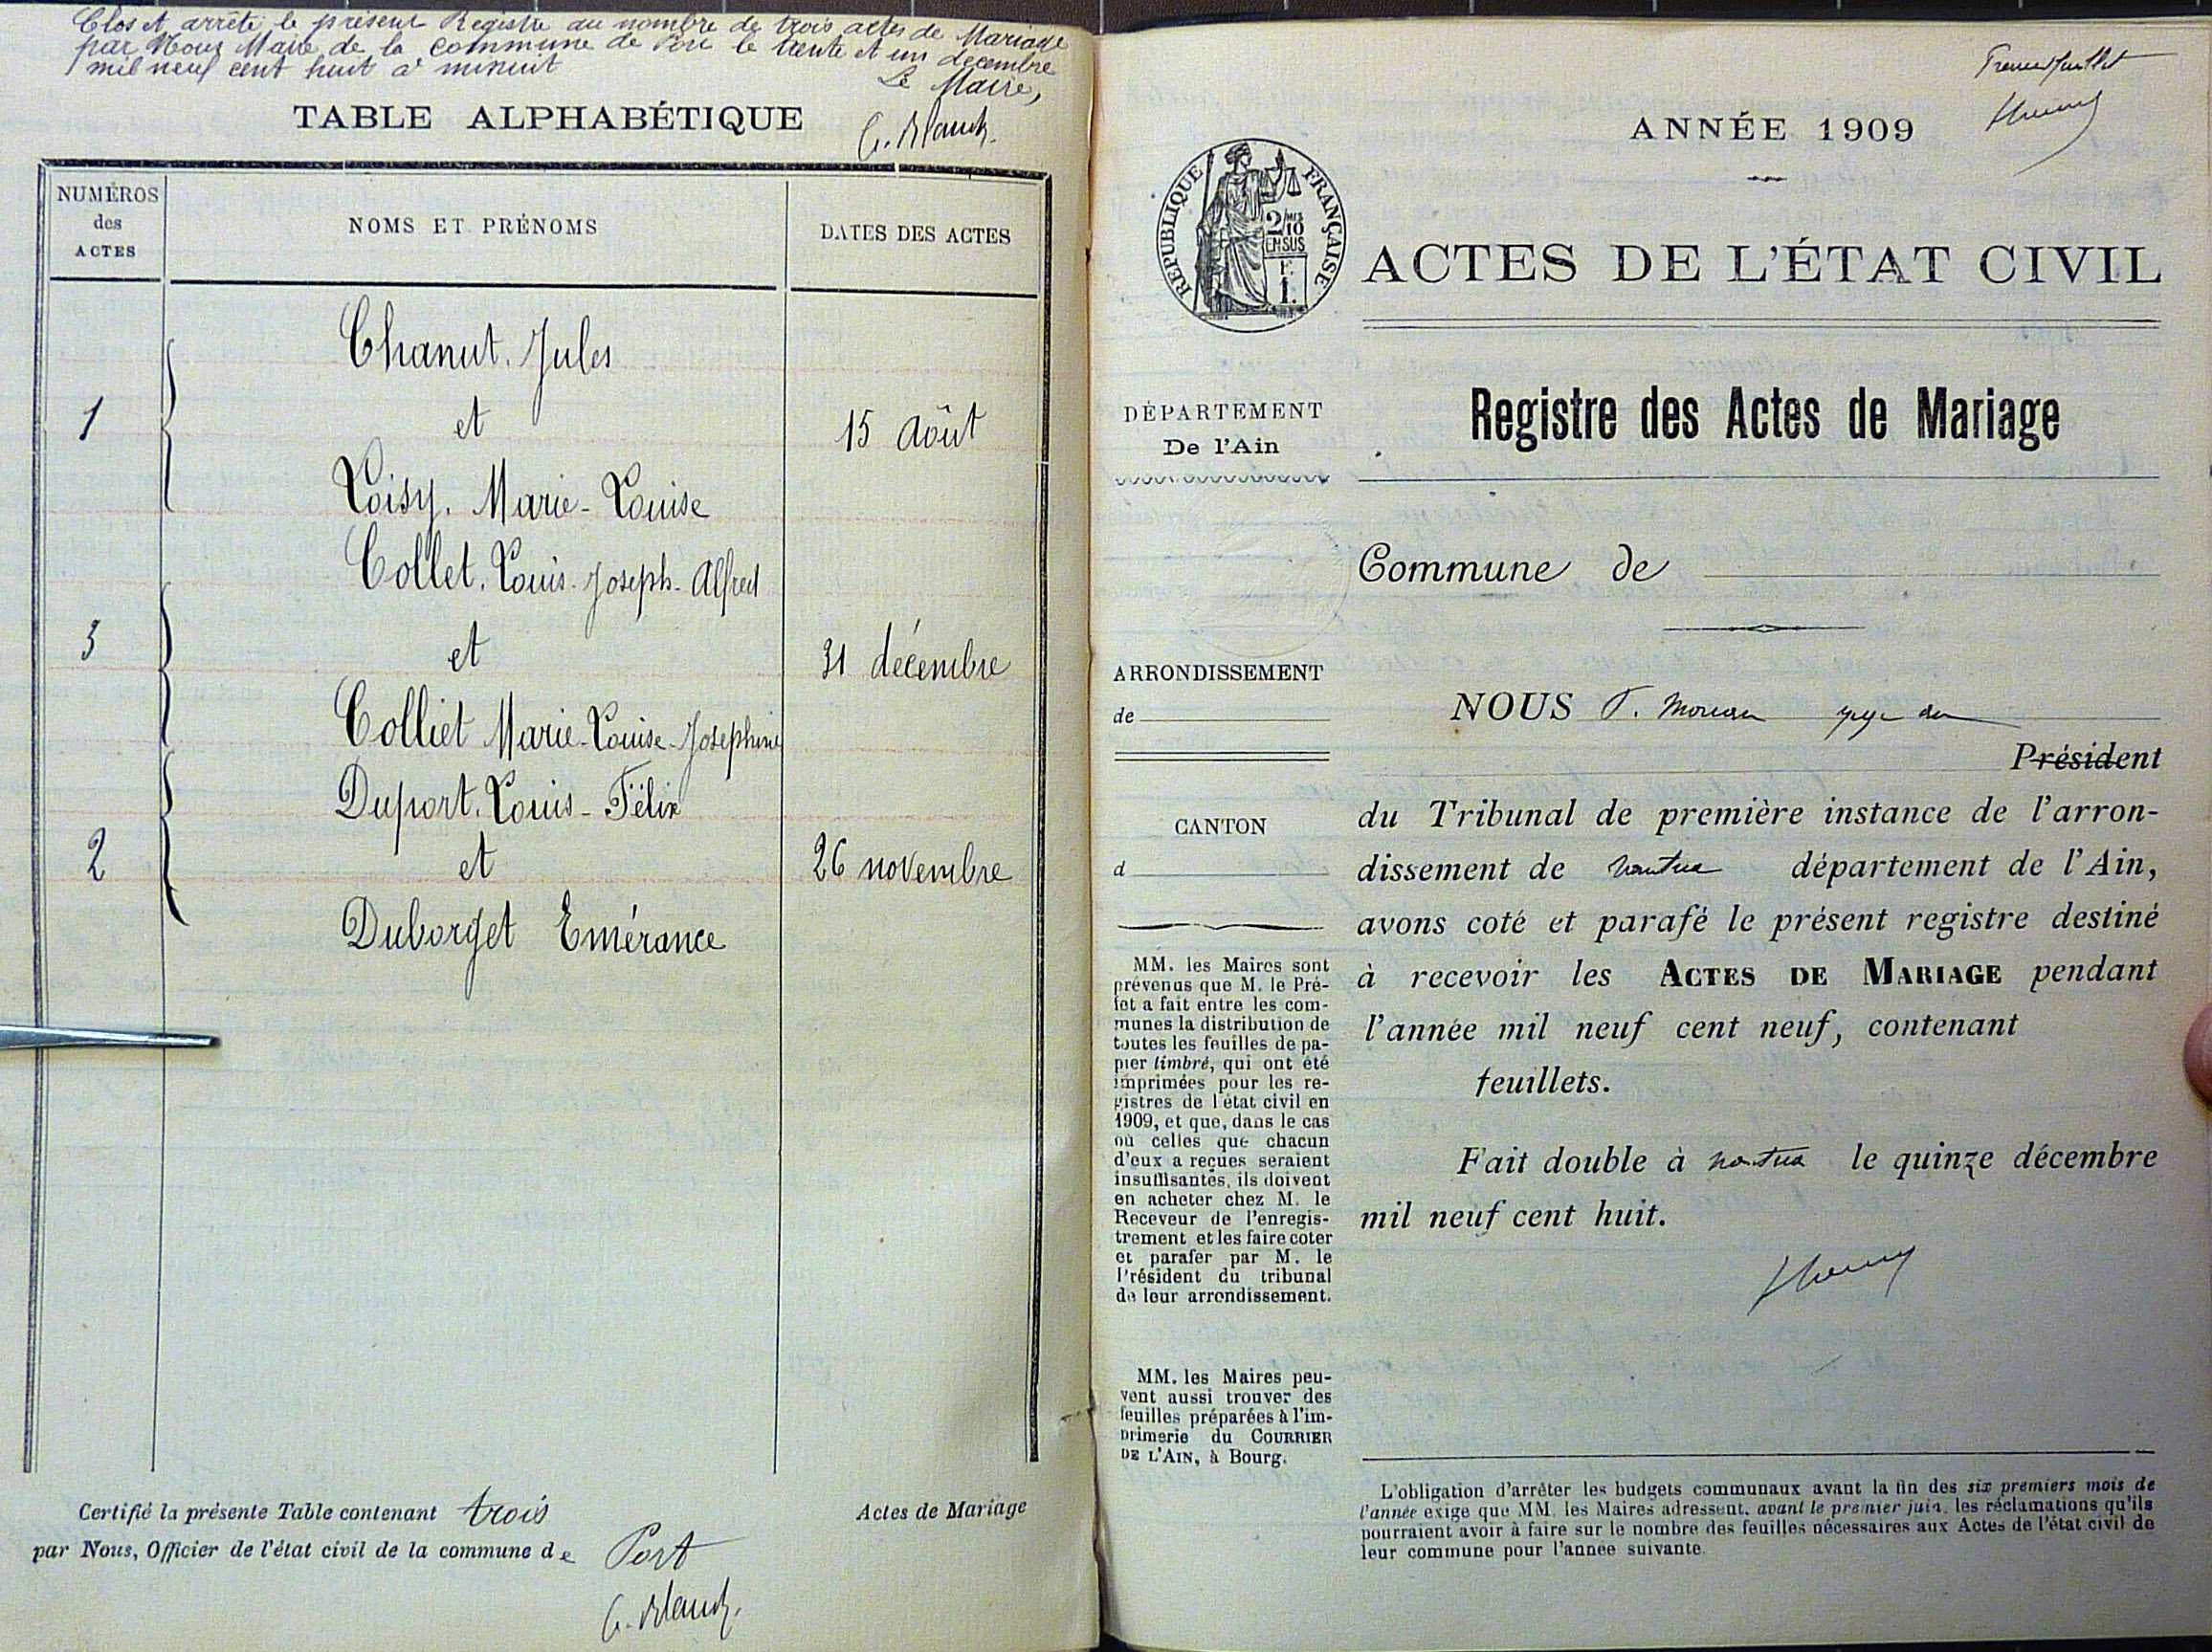 Clos et arrêté le présent Registre au nombre de trois actes de Mariage
par Nous Maire de la commune de Port le trente et un décembre
mil neuf cent huit à minuit
Le Maire,
TABLE ALPHABÉTIQUE
NUMÉROS
des
ACTES
NOMS ET PRÉNOMS
DATES DES ACTES
Chanut. Jules
1 et 15 Août
Loisy. Marie-Louise
Collet. Louis-Joseph-Alfred
3 et 31 décembre
Colliet Marie-Louise-Josephine
Duport. Louis-Félix
2 et 26 novembre
Duborget Emérance
Certifié la présente Table contenant trois Actes de Mariage
par Nous, Officier de l'état civil de la commune de Port
Premier feuillet
ANNÉE 1909
RÉPUBLIQUE FRANÇAISE
2/10
EN SUS
F.
1.
ACTES DE L'ÉTAT CIVIL
DÉPARTEMENT
De l'Ain
Registre des Actes de Mariage
Commune de
ARRONDISSEMENT
de
CANTON
d
MM. les Maires sont
prévenus que M. le Pré-
fet a fait entre les com-
munes la distribution de
toutes les feuilles de pa-
pier timbré, qui ont été
imprimées pour les re-
gistres de l'état civil en
1909, et que, dans le cas
où celles que chacun
d'eux a reçues seraient
insuffisantes, ils doivent
en acheter chez M. le
Receveur de l'enregis-
trement et les faire coter
et parafer par M. le
Président du tribunal
de leur arrondissement.
MM. les Maires peu-
vent aussi trouver des
feuilles préparées à l'im-
primerie du COURRIER
DE L'AIN, à Bourg.
NOUS
Président
du Tribunal de première instance de l'arron-
dissement de Nantua département de l'Ain,
avons coté et parafé le présent registre destiné
à recevoir les ACTES DE MARIAGE pendant
l'année mil neuf cent neuf, contenant
feuillets.
Fait double à Nantua le quinze décembre
mil neuf cent huit.
L'obligation d'arrêter les budgets communaux avant la fin des six premiers mois de
l'année exige que MM. les Maires adressent, avant le premier juin, les réclamations qu'ils
pourraient avoir à faire sur le nombre des feuilles nécessaires aux Actes de l'état civil de
leur commune pour l'année suivante.